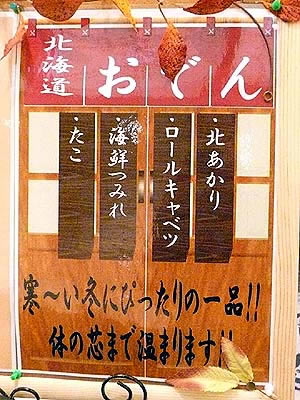 北海道
おでん
・北あかり
・ロールキャベツ
海鮮つみれ
・たこ
寒〜い冬にぴったりの一品!!
体の芯まで温まります!!